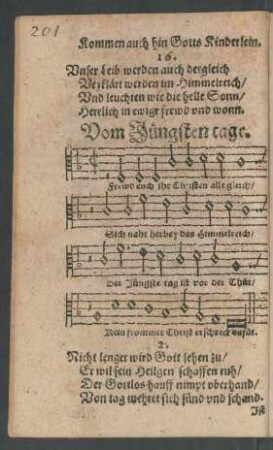 201
Kommen auch hin Gotts Kinderlein.
16.
Vnser Leib werden auch dergleich
Verklärt werden im Himmelreich/
Vnd leuchten wie die helle Sonn/
Herrlich in ewigr frewd vnd wonn.
Vom Jüngsten tage.
Frewd euch ihr Christen alle gleich/
Sich naht herbey das Himmelreich/
Der Jüngste tag ist vor der Thür/
Kein frommer Christ erschreck dafür.
2.
Nicht lenger wird Gott sehen zu/
Er wil sein Heilgen schaffen ruh/
Der Gottlos hauff nimpt vberhand/
Von tag mehret sich sünd vnd schand.
Ist